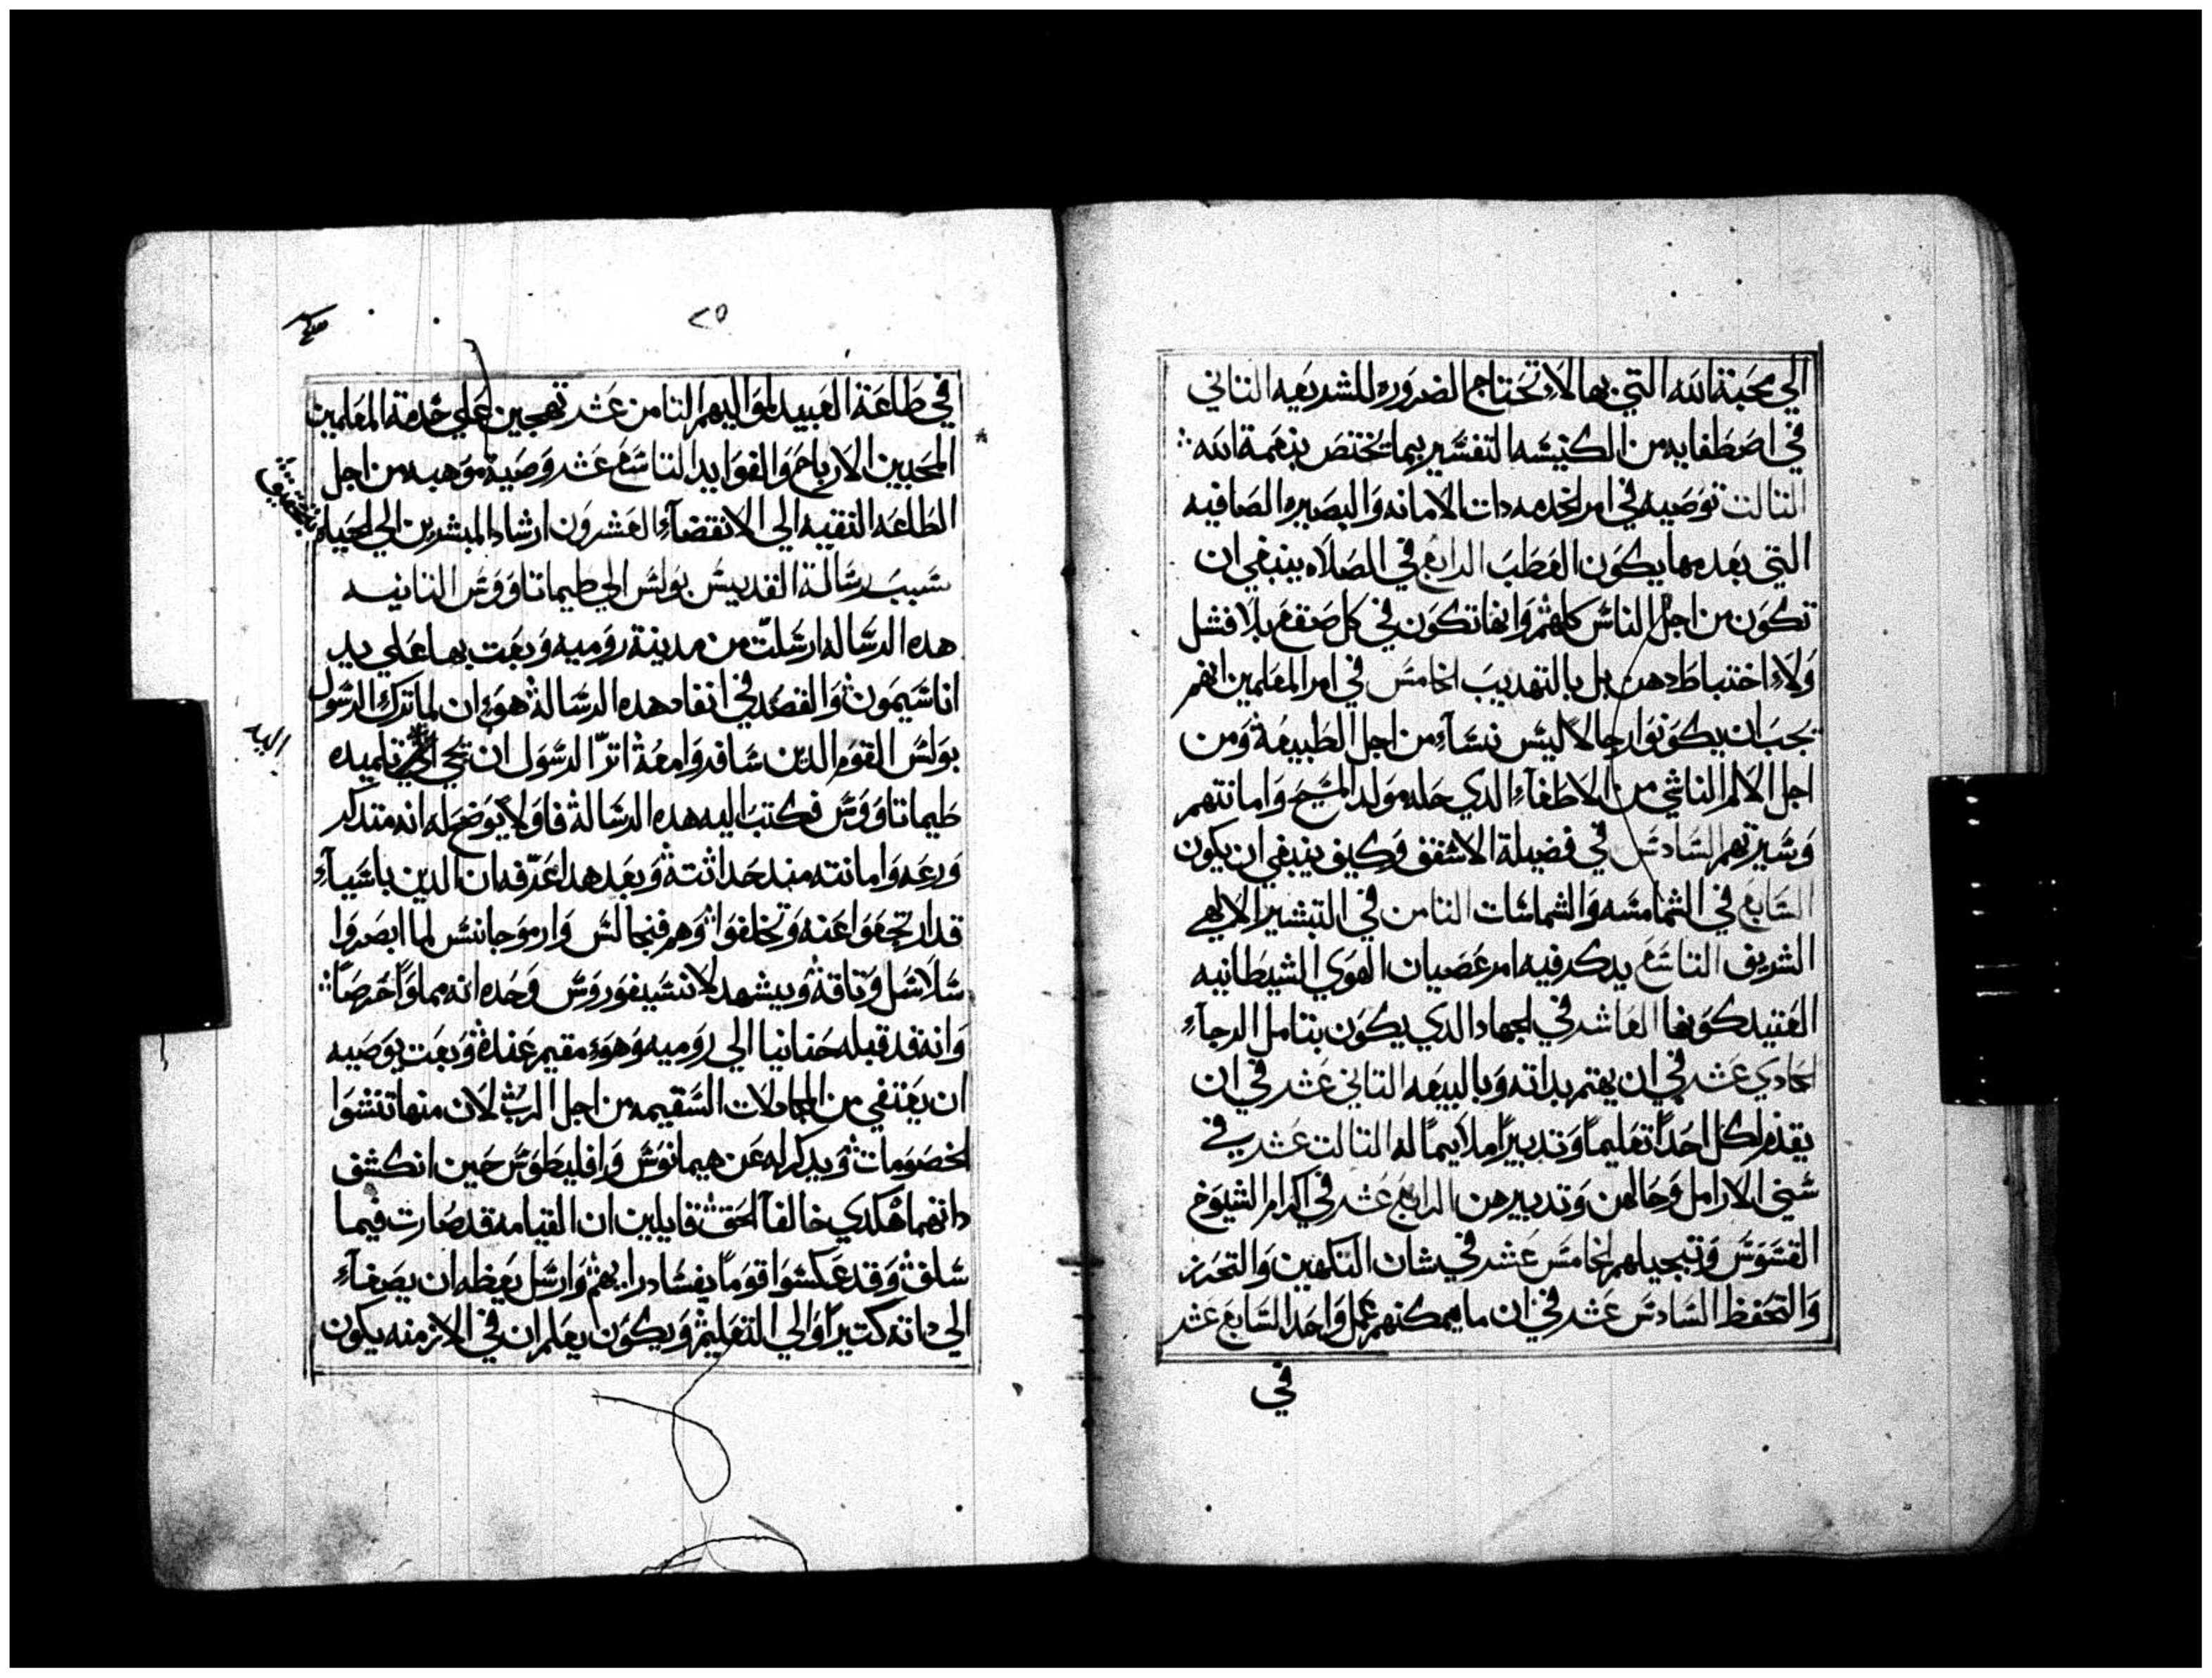 الي محبة الله التي بها لاتحتاج الضروره للشريعه التاني
في اصطفايه من الكنيسه التفسير بما تختص بنعمة الله
التالت توصيه في امر الخدمه دات الامانه والبصيره الصافيه
التي بعدمها يكون العطب الرابع في الصلاه ينبغي ان
تكون من اجل الناس كلهم وانها تكون في كل صقع بلا فشل
ولا اختباط دهن بل بالتهديب الخامس في امر المعلمين انهم
يجب ان يكونوا رجالا ليس نساء من اجل الطبيعة ومن
اجل الالم الناشي من الاطفاء الدي حله مولد المسيح وامانتهم
وسيرتهم السادس في فضيلة الاسقف وكيف ينبغي ان يكون
السابع في الشمامسه والشماسات التامن في التبشير الالاهي
الشريف التاسع يدكر فيه امر عصيان الهوي الشيطانيه
العتيد كونها العاشر في الجهاد الدي يكون بتامل الرجاء
الحادي عشر في ان يهتم بداته وبالبيعه التاني عشر في ان
يقدم لكل احدا تعليما وتدبيرا ملايما له التالت عشر في
سني الارامل وحالهن وتدبيرهن الرابع عشر في اكرام الشيوخ
القسوس وتبجيلهم الخامس عشر في شان التكهين والتحرز
والتحفظ السادس عشر في ان ما يمكنهم عمل واحد السابع عشر
في
٢٥
في طاعة العبيد لمواليهم التامن عشر تهجين علي خدمة المعلمين
المحبين الارباح والفوايد التاسع عشر وصية موهبه من اجل
الطاعه النقيه الي الانقضاء العشرون ارشاد المبشرين الي الحياه
سبب رسالة القديس بولس الي طيماتاووس التانيه
هده الرساله ارسلت من مدينة روميه وبعت بها علي يد
اناسيمون والقصد في انفاد هده الرسالة هو ان لما ترك الرسول
بولس القوم الدين سافروا معة اترا الرسول ان يجي تلميده
اليه
طيماتاووس فكتب اليه هده الرسالة فاولا يوضح له انه متدكر
ورعه وامانته مند حداثتة وبعد هدا عرفه ان الدين باسياء
قد ارتجفوا عنه وتخلفوا وهم فنجالس وارموجانس لما ابصروا
سلاسل وتاقة ويشهد لانسيفوروس وحده انه مملوا حرصا
وانه قد قبله حنانيا الي روميه وهو مقيم عندة وبعت يوصيه
ان يعتفي من المجادلات السقيمه من اجل الرب لان منها تنشوا
الخصومات ويدكر له عن هيمانوس وافليطوس حين انكشف
دانهما هكدي خالفا الحق قايلين ان القيامه قد صارت فيما
سلف وقد عكسوا قوما بفساد رايهم وارسل يعظه ان يصغاء
الي داته كتيرا والي التعليم ويكون يعلم ان في الازمنه يكون